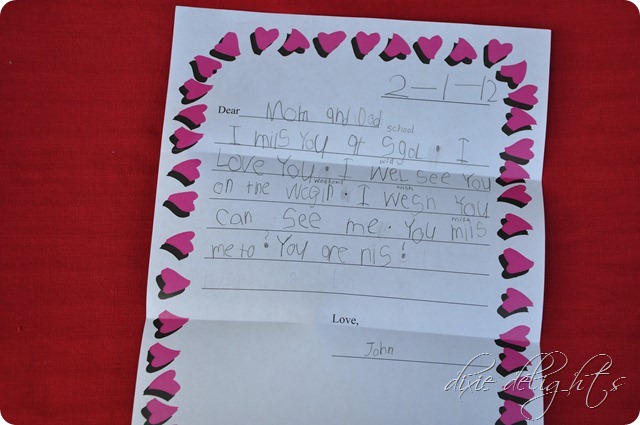 2-1-12
Dear Mom and Dad
school
I mils You at Sgol . I
will
LOVE YOU . I Wel see YOU
weekend wish
on the wegin . I Wesh YOU
miss
can see me . You mils
me to ! You are nis !
Love,
John
dixie delights